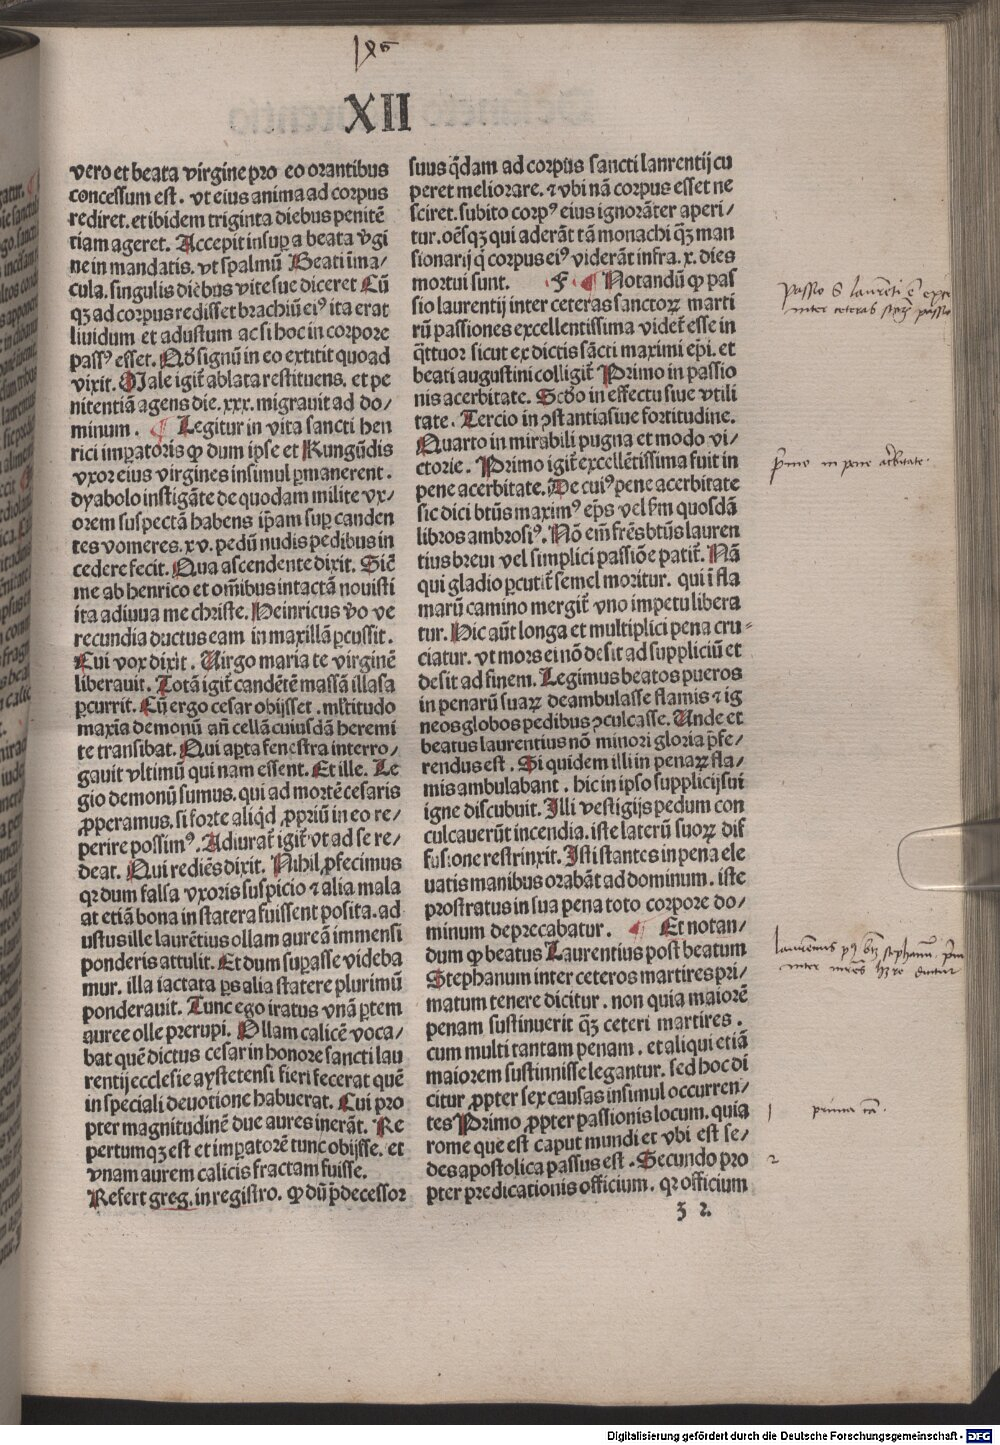 XII
vero et beata virgine pro eo orantibus
concessum est. vt eius anima ad corpus
rediret. et ibidem triginta diebus penitẽ
tiam ageret. Accepit insuꝑ a beata v̾gi
ne in mandatis. vt spalmũ Beati ĩma/
cula. singulis diebus vite sue diceret Cũ
qʒ ad corpus redisset brachiũ eiꝰ ita erat
liuidum et adustum ac si hoc in corpore
passꝰ esset. Qđ signũ in eo extitit quoad
vixit. Male igit̃ ablata restituens. et pe
nitentiam agens die. xxx. migrauit ad do/
minum. ¶ Legitur in vita sancti hen
rici imꝑatoris ꝙ dum ipse et Kungũdis
vxor eius virgines insimul ꝑmanerent.
dyabolo instigãte de quodam milite vx/
orem suspectã habens ip̃am suꝑ canden
tes vomeres. xv. pedũ nudis pedibus in
cedere fecit. Qua ascendente dixit. Sic̃
me ab henrico et om̃ibus intactã nouisti
ita adiuua me christe. Heinricus v̾o ve
recundia ductus eam in maxillã ꝑcussit.
Cui vox dixit. Virgo maria te virginẽ
liberauit. Totã igit̃ candẽtẽ massã illasa
ꝑcurrit. Cũ ergo cesar obijsset. ml̃titudo
maxĩa demonũ añ cellã cuiusdã heremi
te transibat. Qui aꝑta fenestra interro/
gauit vltimũ qui nam essent. Et ille. Le
gio demonũ sumus. qui ad mortẽ cesaris
ꝓperamus. si forte aliq̃d ꝓpriũ in eo re/
perire possimꝰ. Adiurat̃ igit̃ vt ad se re/
deat. Qui rediẽs dixit. Nihil ꝓfecimus
qꝛ dum falsa vxoris suspicio ⁊ alia mala
at etiã bona in statera fuissent posita. ad
ustus ille laurẽtius ollam aureã immensi
ponderis attulit. Et dum suꝑasse videba
mur. illa iactata ꝑs alia statere plurimũ
ponderauit. Tunc ego iratus vnã ꝑtem
auree olle prerupi. Ollam calicẽ voca/
bat quẽ dictus cesar in honore sancti lau
rentij ecclesie aystetensi fieri fecerat quẽ
in speciali deuotione habuerat. Cui pro
pter magnitudinẽ due aures inerãt. Re
pertumqʒ est et imꝑatorẽ tunc obijsse. et
vnam aurem calicis fractam fuisse.
Refert greg. in registro. ꝙ dũ p̃decessor
suus q̃dam ad corpus sancti lanrentij cu
peret meliorare. ⁊ vbi nã corpus esset ne
sciret. subito corpꝰ eius ignorãter aperi/
tur. oẽsqʒ qui aderãt tã monachi qʒ man
sionarij q̇ corpus eiꝰ viderãt infra. x. dies
mortui sunt. .F. ¶ Notandũ ꝙ pas
sio laurentij inter ceteras sanctoꝝ marti
rũ passiones excellentissima videt̃ esse in
q̃ttuor sicut ex dictis sãcti maximi ep̃i. et
beati augustini colligit̃ Primo in passio
nis acerbitate. Scđo in effectu siue vtili
tate. Tercio in ꝯstantia siue fortitudine.
Quarto in mirabili pugna et modo vi/
ctorie. Primo igit̃ excellẽtissima fuit in
pene acerbitate. De cuiꝰ pene acerbitate
sic dici btũs maximꝰ ep̃s vel sm̃ quosdã
libros ambrosiꝰ. Nõ em̃ frẽs btũs lauren
tius breui vel simplici passiõe patit̃. Nã
qui gladio ꝑcutit̃ semel moritur. qui ĩ fla
marũ camino mergit̃ vno impetu libera
tur. Hic aũt longa et multiplici pena cru
ciatur. vt mors ei nõ desit ad suppliciũ et
desit ad finem. Legimus beatos pueros
in penarũ suaꝝ deambulasse flamis ⁊ ig
neos globos pedibus ꝯculcasse. Unde et
beatus laurentius nõ minori gloria p̃fe/
rendus est. Si quidem illi in penaꝝ fla/
mis ambulabant. hic in ipso supplicij sui
igne discubuit. Illi vestigijs pedum con
culcauerũt incendia. iste laterũ suoꝝ dif
fusione restrinxit. Isti stantes in pena ele
uatis manibus orabãt ad dominum. iste
prostratus in sua pena toto corpore do/
minum deprecabatur. ¶ Et notan/
dum ꝙ beatus Laurentius post beatum
Stephanum inter ceteros martires pri/
matum tenere dicitur. non quia maiorẽ
penam sustinuerit qʒ ceteri martires.
cum multi tantam penam. et aliqui etiã
maiorem sustinnisse legantur. sed hoc di
citur ꝓpter sex causas insimul occurren/
tes Primo ꝓpter passionis locum. quia
rome que est caput mundi et vbi est se/
des apostolica passus est. Secundo pro
pter predicationis officium. qꝛ officium
ʒ 2.
prima
2
Digitalisierung gefördert durch die Deutsche Forschungsgemeinschaft - DFG